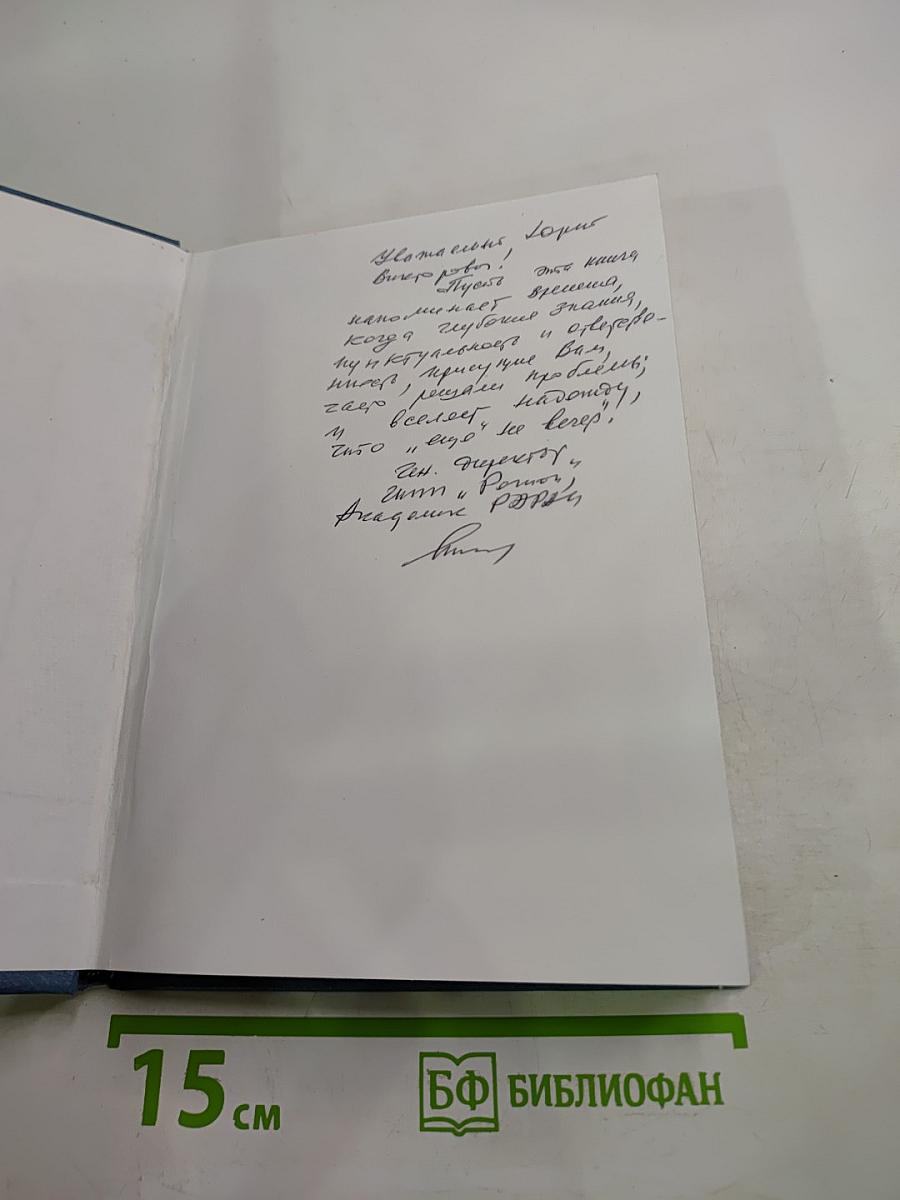 Уважаемый Юрий
Викторович!
Пусть эта книга
напоминает времена,
когда глубокие знания,
пунктуальность и ответствен-
ность, присущие Вам,
часто решали проблемы;
и вселяет надежду,
что „ещё" не вечер"!
Ген. директор
Академик РАРАН
15 см
БФ БИБЛИОФАН